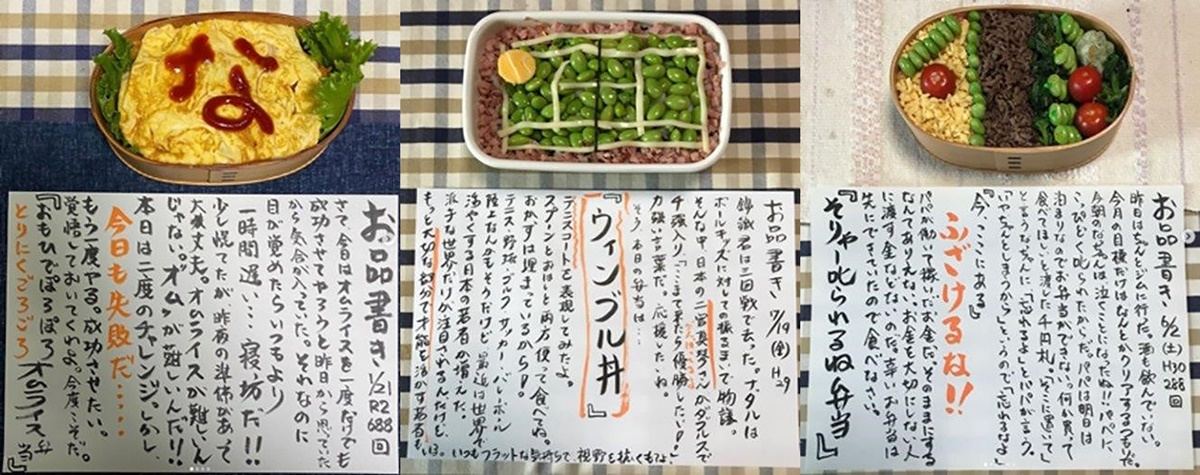 な
お品書き 1/21 R2 688回
さて、今日はオムライスを一度だけでも
成功させてやろうと昨日から思っていた
から気合が入っていた。それなのに
目が覚めたらいつもより
一時間遅い…寝坊だ!!
少し慌てたが昨夜の準備があって
大丈夫。オムライスが難しいん
じゃない。オムが難しいんだ!!
本日は二度のチャレンジ。しかし、
今日も失敗だ……
もう一度やる。成功させたい。
覚悟しておいてくれよ。今度こそだ。
とりにくごろごろ
『おもひでぽろぽろオムライス弁当』
お品書き 7/19(金) H29
錦織君は三回戦で去った。ナダルは
ボールキッズに対しての振るまいで物議。
そんな中、日本の二宮真琴さんがダブルスで
4強入り「ここまで来たら優勝したい!」
力強い言葉だ。応援したいね。
そう、本日の弁当は…
『ウィンブル丼』
テニスコートを表現してみたよ。
スプーンとおはしと両方使って食べてね。
おかずは埋まっているからD!
テニス・野球・ゴルフ・サッカー・バレーボール
陸上なんかもそうだけど、最近は世界で
活やくする日本の若者が増えた。
派手な世界だけが注目されるんだけれど、
もっと大切な部分で才能を活かす若者も
いる。いつもフラットな気持ちで視野を抜くもよ。
お品書き 6/2(土) H30 288回
今月の目標だけはなんとかクリアするつもりだ。
今朝のなぁんは泣くことになったね!!パパに
こっぴどく叱られたからだ。パパは明日は
泊まりなのでお弁当ができない。何か買って
食べてほしいと渡した千円札。「そこに置いて」
「今、ここにある」
ふざけるな!!
パパが働いて稼いだお金だ。そのままにする
なんてありえない。お金を大切にしない人
に渡す金などないのだ。幸いお弁当は
先にできていたので食べなさい。
『そりゃ叱られるね弁当』